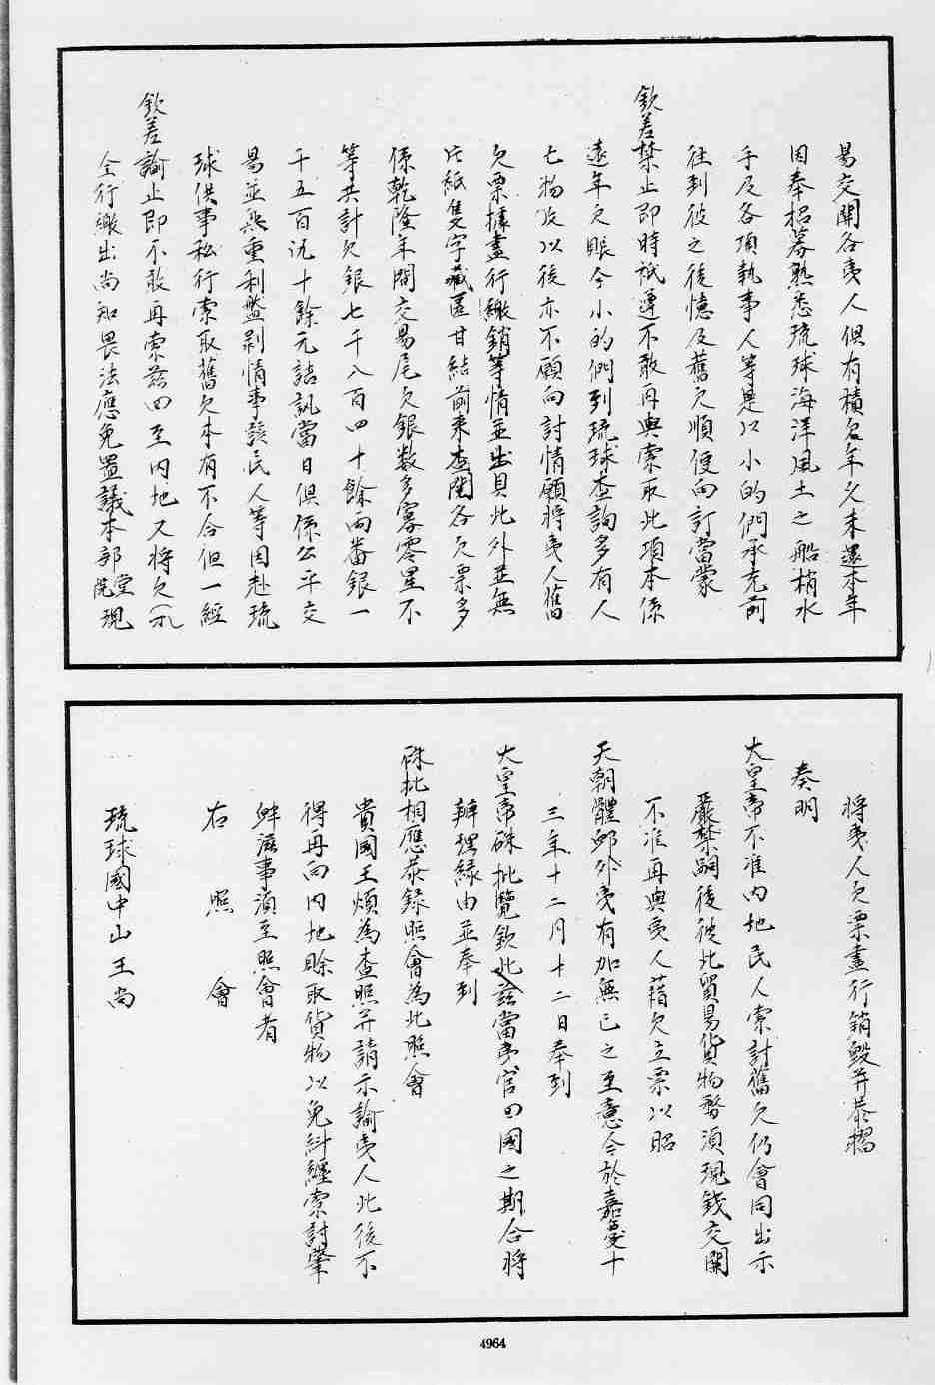 易交關各夷人但有積名年久未還本年
因奉招募熟悉琉球海洋風土之船梢水
手及各項執事人等是以小的們承充前
往到彼之後憶及舊欠順便向討當蒙
欽差禁止即時祗遵不敢再與索取此項本係
遠年欠賬今小的們到琉球查詢多有人
亡物故以後亦不願向討情願將夷人舊
欠票據盡行繳銷等情並出具此外並無
片紙隻字藏匿甘結前來查閱各欠票多
係乾隆年間交易尾欠銀数多寡零星不
等共計欠銀七千八百四十餘兩番銀一
千五百玖十餘元詰訊當日俱係公平交
易並無重利盤剝情事該民人等因赴琉
球供事私行索取舊欠本有不合但一經
欽差諭止即不敢再索茲回至內地又將欠票
全行繳出尚知畏法應免置議本部堂院現
將夷人欠票盡行銷毀并恭摺
奏明
大皇帝不准內地民人索討舊欠仍會同出示
嚴禁嗣後彼此貿易貨物務須現錢交關
不准再與夷人藉欠立票以昭
天朝體卹外夷有加無已之至意今於嘉慶十
三年十二月十二日奉到
大皇帝硃批覽欽此茲當夷官回國之期合將
辦理緣由並奉到
硃批相應恭錄照會為此照會
貴國王煩為查照并請示諭夷人此後不
得再向內地賒取貨物以免糾纏索討肇
衅滋事須至照會者
右照會
琉球國中山王尚
4964